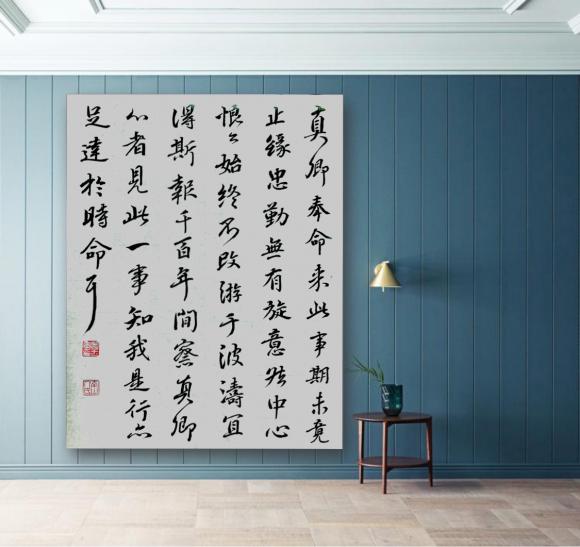 真卿奉命来此事期未竟
止緣忠勤無有旋意然中心
恨々始終不改游于波濤宜
得斯報千百年間察真卿
心者見此一事知我是行亦
足達於時命耳